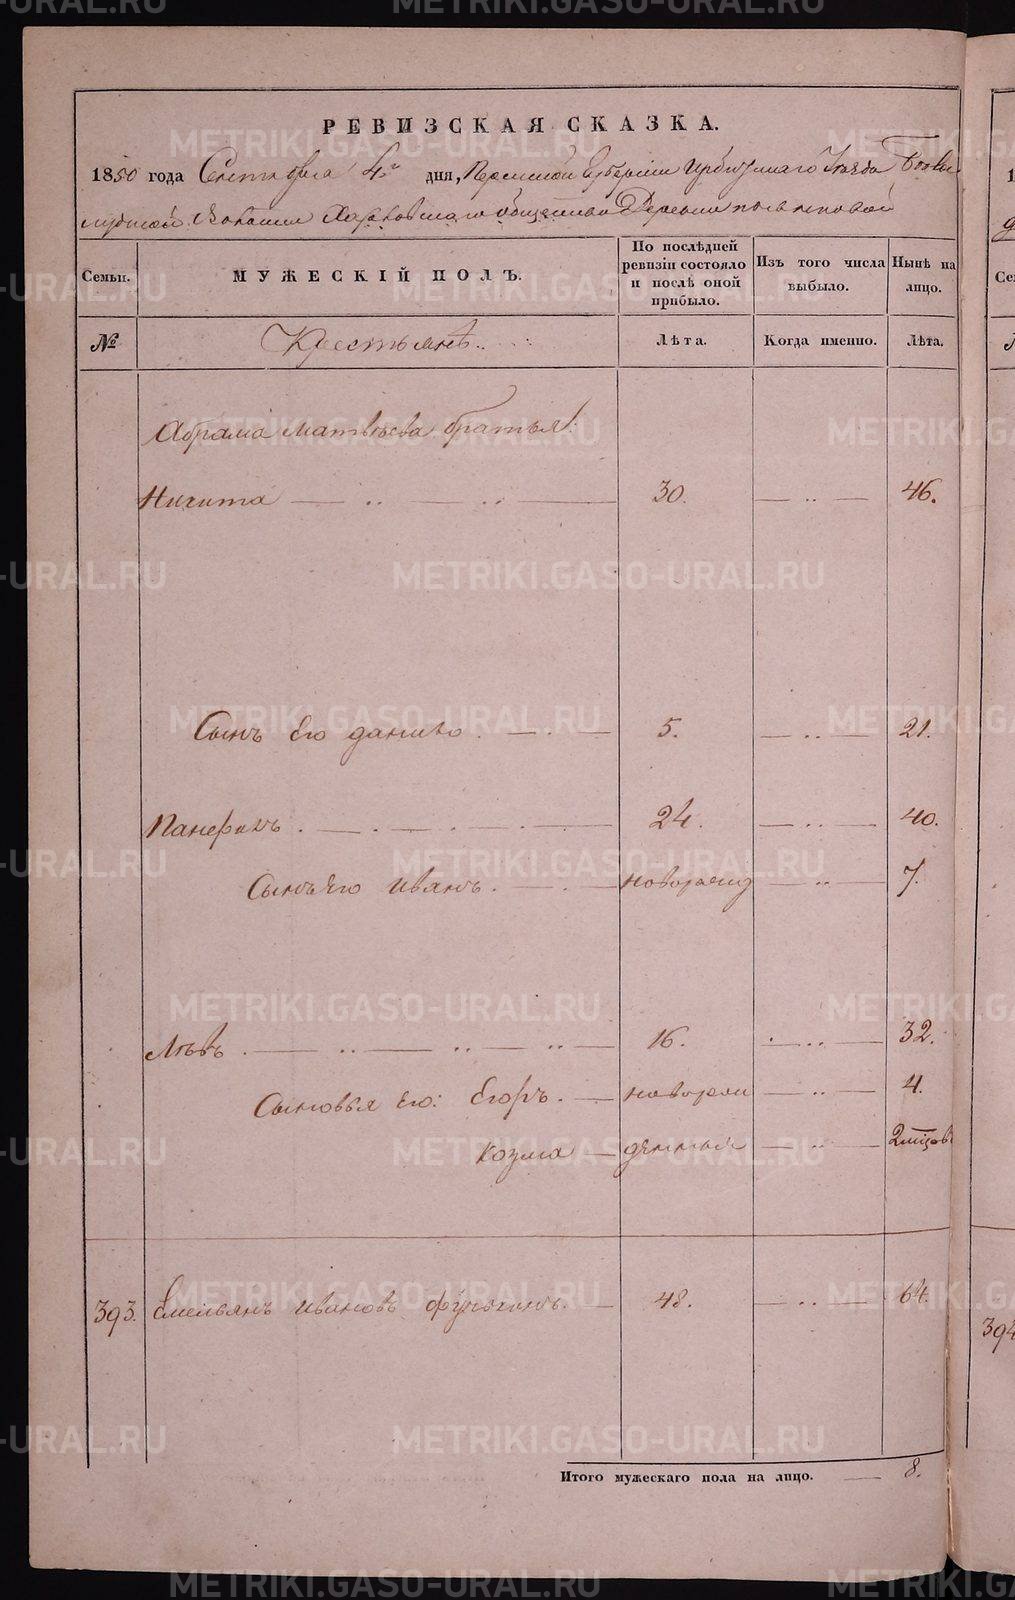 РЕВИЗСКАЯ СКАЗКА.
1850 года Сентября 4го дня, Пермской Губернии Ирбитскаго Уезда
Волости Харловскаго общества Деревни
Семьи. МУЖЕСКІЙ ПОЛЪ. По послѣдней ревизіи состояло и послѣ оной прибыло. Изъ того числа выбыло. Нынѣ на лицо.
№ Крестьянѣ. Лѣта. Когда именно. Лѣта.
Абрама Матвѣева братья:
Никита 30. 46.
Сынъ Его данило 5. 21.
Панфилъ 24. 40.
Сынъ Его иванъ. новорожд 7.
Львъ 16. 32.
Сыновья Его: Егоръ. новорож 4.
Козма денныя 2 мцов
393. Емельянъ ивановъ 48. 64.
Итого мужескаго пола на лицо. 8.
394
METRIKI.GASO-URAL.RU